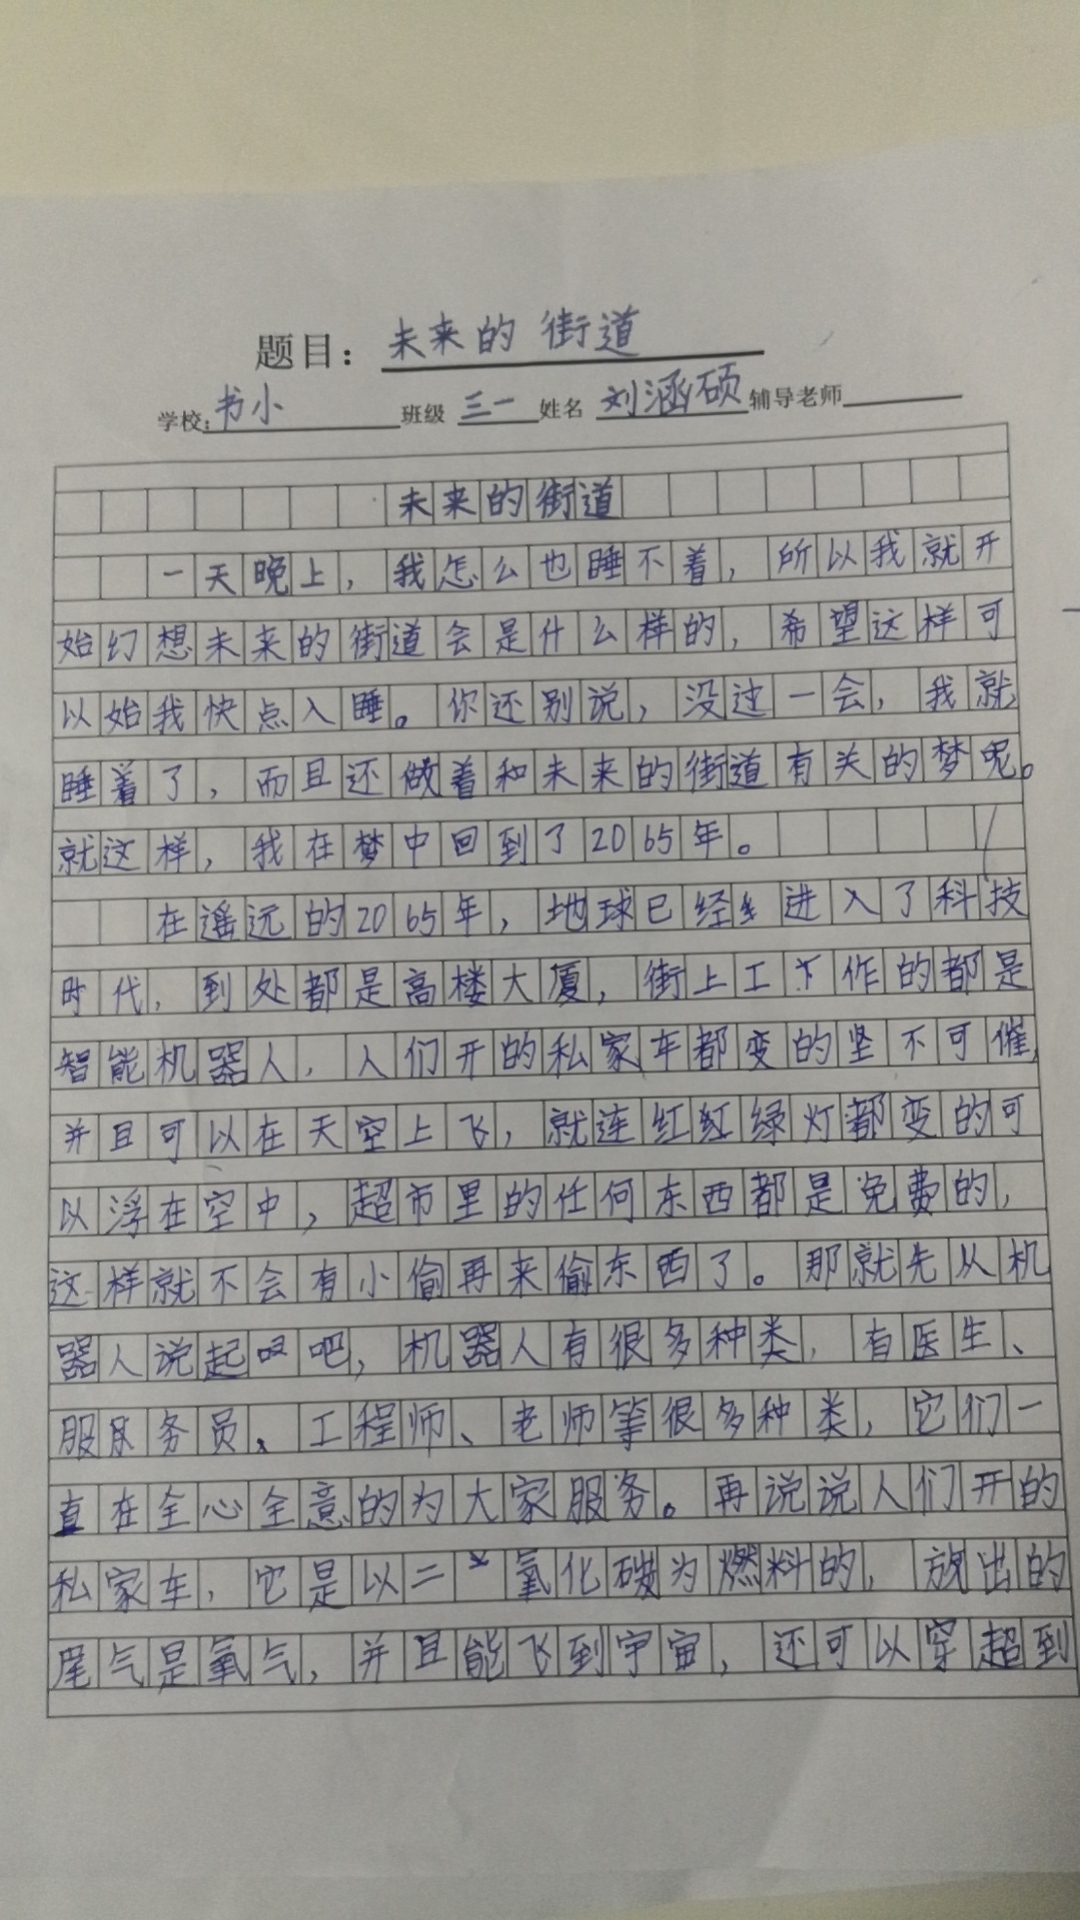 题目：未来的街道
学校：书小 班级 三一 姓名 刘涵硕 辅导老师
未来的街道
一天晚上，我怎么也睡不着，所以我就开
始幻想未来的街道会是什么样的，希望这样可
以始我快点入睡。你还别说，没过一会，我就
睡着了，而且还做着和未来的街道有关的梦呢。
就这样，我在梦中回到了2065年。
在遥远的2065年，地球已经进入了科技
时代，到处都是高楼大厦，街上工作的都是
智能机器人，人们开的私家车都变的坚不可催，
并且可以在天空上飞，就连红红绿灯都变的可
以浮在空中，超市里的任何东西都是免费的，
这样就不会有小偷再来偷东西了。那就先从机
器人说起吧，机器人有很多种类，有医生、
服务员、工程师、老师等很多种类，它们一
直在全心全意的为大家服务。再说说人们开的
私家车，它是以二氧化碳为燃料的，放出的
尾气是氧气，并且能飞到宇宙，还可以穿超到